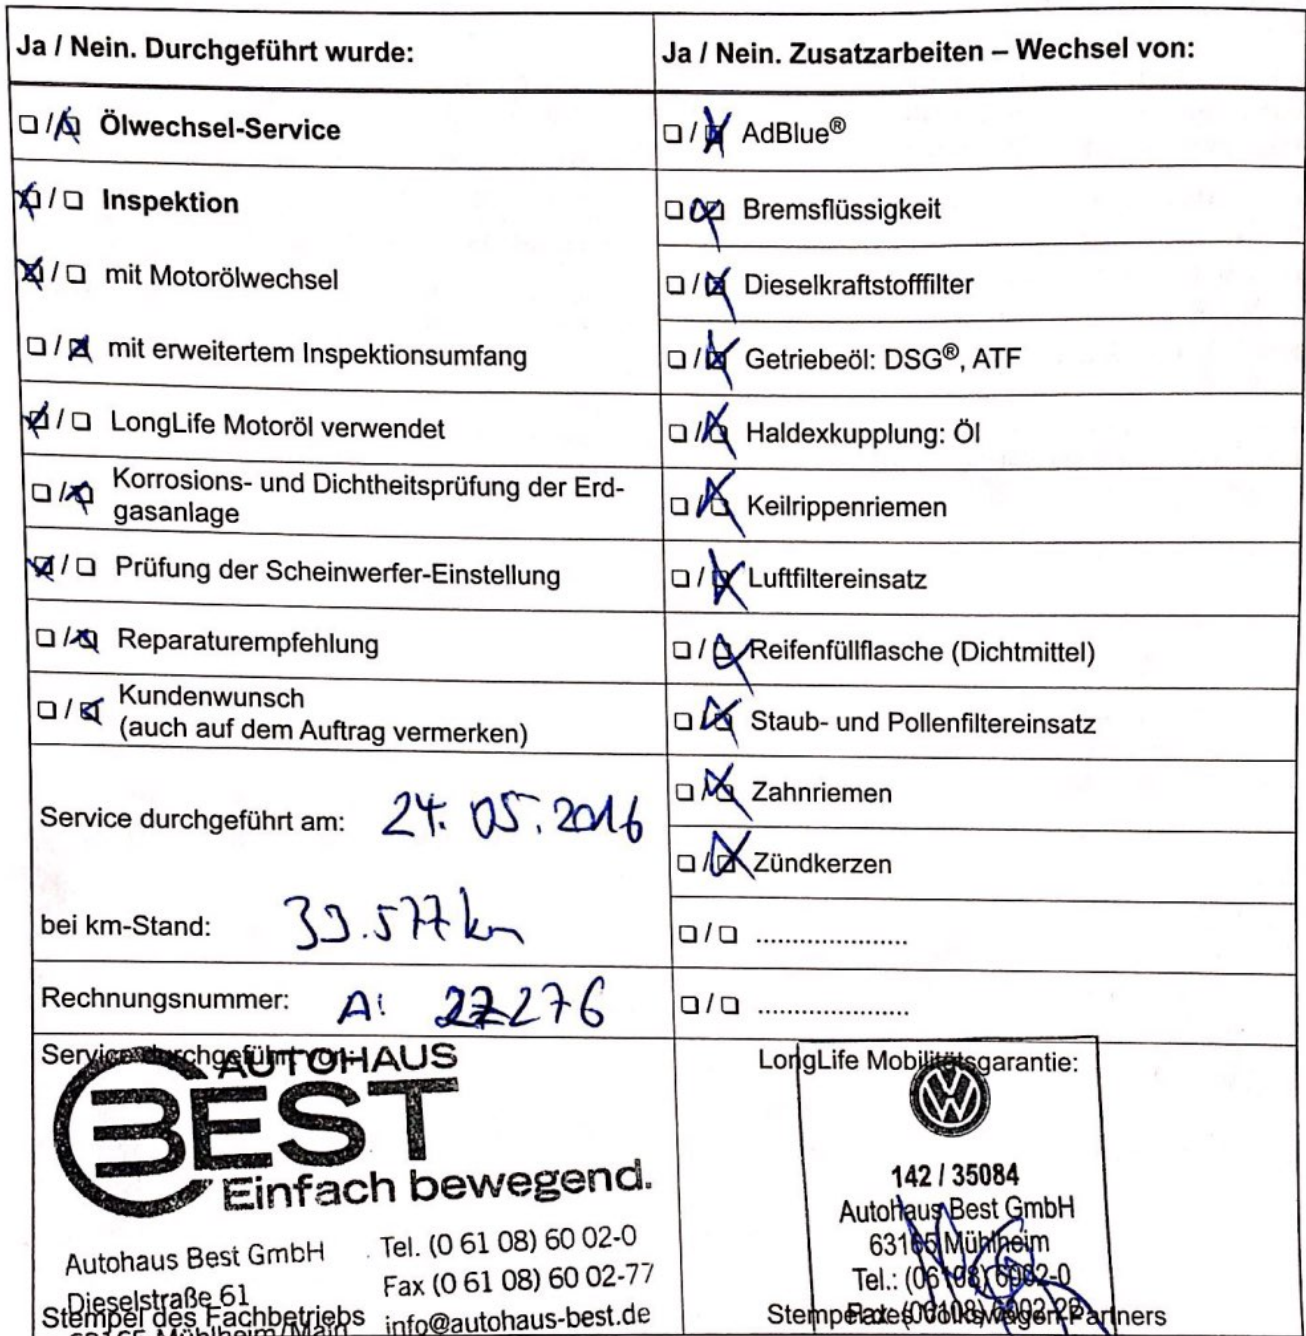 Ja / Nein. Durchgeführt wurde:
☐ / ☒ Ölwechsel-Service
☒ / ☐ Inspektion
☒ / ☐ mit Motorölwechsel
☐ / ☒ mit erweitertem Inspektionsumfang
☒ / ☐ LongLife Motoröl verwendet
☐ / ☒ Korrosions- und Dichtheitsprüfung der Erd-
gasanlage
☒ / ☐ Prüfung der Scheinwerfer-Einstellung
☐ / ☒ Reparaturempfehlung
☐ / ☒ Kundenwunsch
(auch auf dem Auftrag vermerken)
Service durchgeführt am: 24.05.2016
bei km-Stand: 39.577 km
Rechnungsnummer: A! 27276
Service durchgeführt von:
AUTOHAUS
BEST
Einfach bewegend.
Autohaus Best GmbH
Dieselstraße 61
63165 Mühlheim/Main
Tel. (0 61 08) 60 02-0
Fax (0 61 08) 60 02-77
info@autohaus-best.de
Stempel des Fachbetriebs
Ja / Nein. Zusatzarbeiten – Wechsel von:
☐ / ☒ AdBlue®
☐ / ☒ Bremsflüssigkeit
☐ / ☒ Dieselkraftstofffilter
☐ / ☒ Getriebeöl: DSG®, ATF
☐ / ☒ Haldexkupplung: Öl
☐ / ☒ Keilrippenriemen
☐ / ☒ Luftfiltereinsatz
☐ / ☒ Reifenfüllflasche (Dichtmittel)
☐ / ☒ Staub- und Pollenfiltereinsatz
☐ / ☒ Zahnriemen
☐ / ☒ Zündkerzen
☐ / ☐ .....................
☐ / ☐ .....................
LongLife Mobilitätsgarantie:
142 / 35084
Autohaus Best GmbH
63165 Mühlheim
Tel.: (06108) 6002-0
Fax: (06108) 6002-22
Stempel des Volkswagen Partners